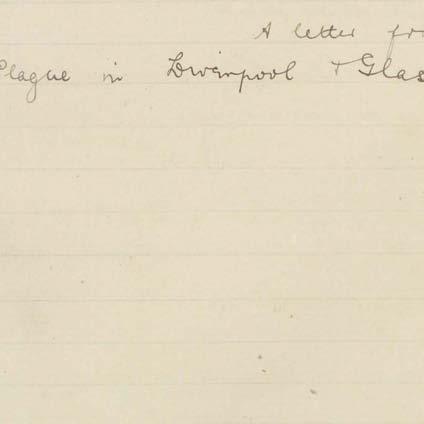 A letter fro
Plague in Liverpool + Glas